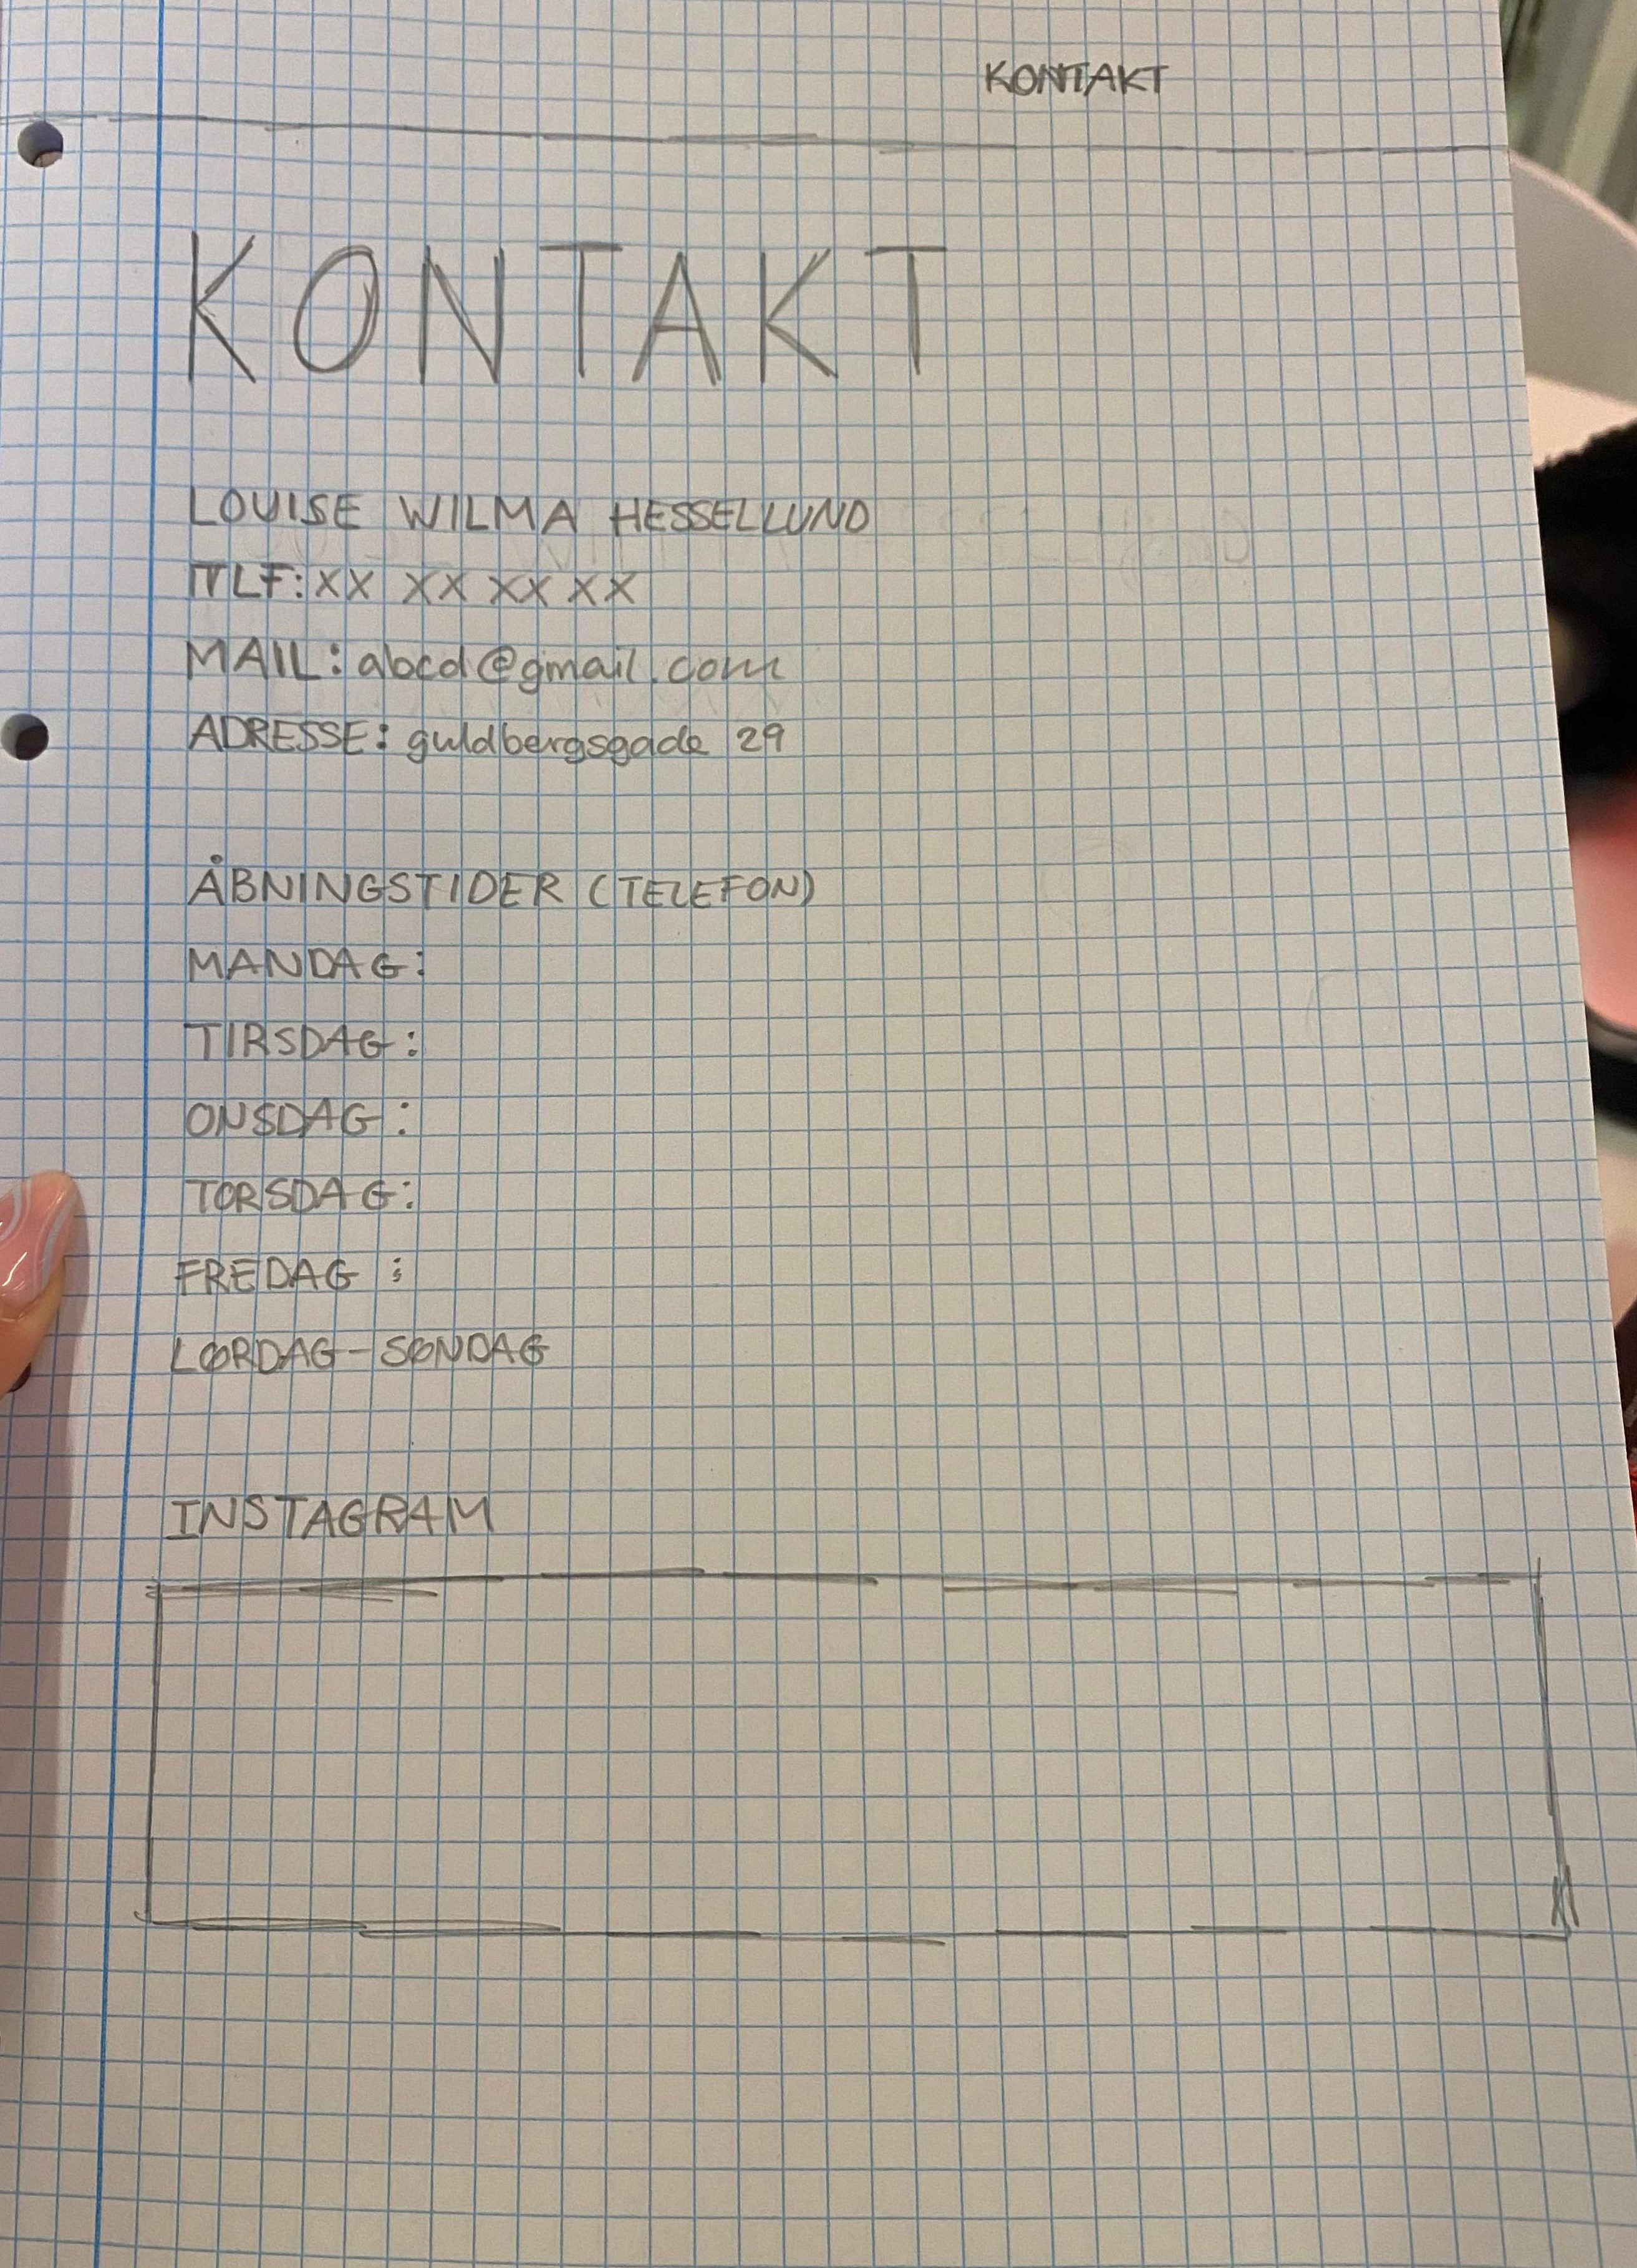 KONTAKT
KONTAKT
LOUISE WILMA HESSELLUND
TLF: XX XX XX XX
MAIL: abcd@gmail.com
ADRESSE: guldbergsgade 29
ÅBNINGSTIDER (TELEFON)
MANDAG:
TIRSDAG:
ONSDAG:
TORSDAG:
FREDAG :
LØRDAG-SØNDAG
INSTAGRAM